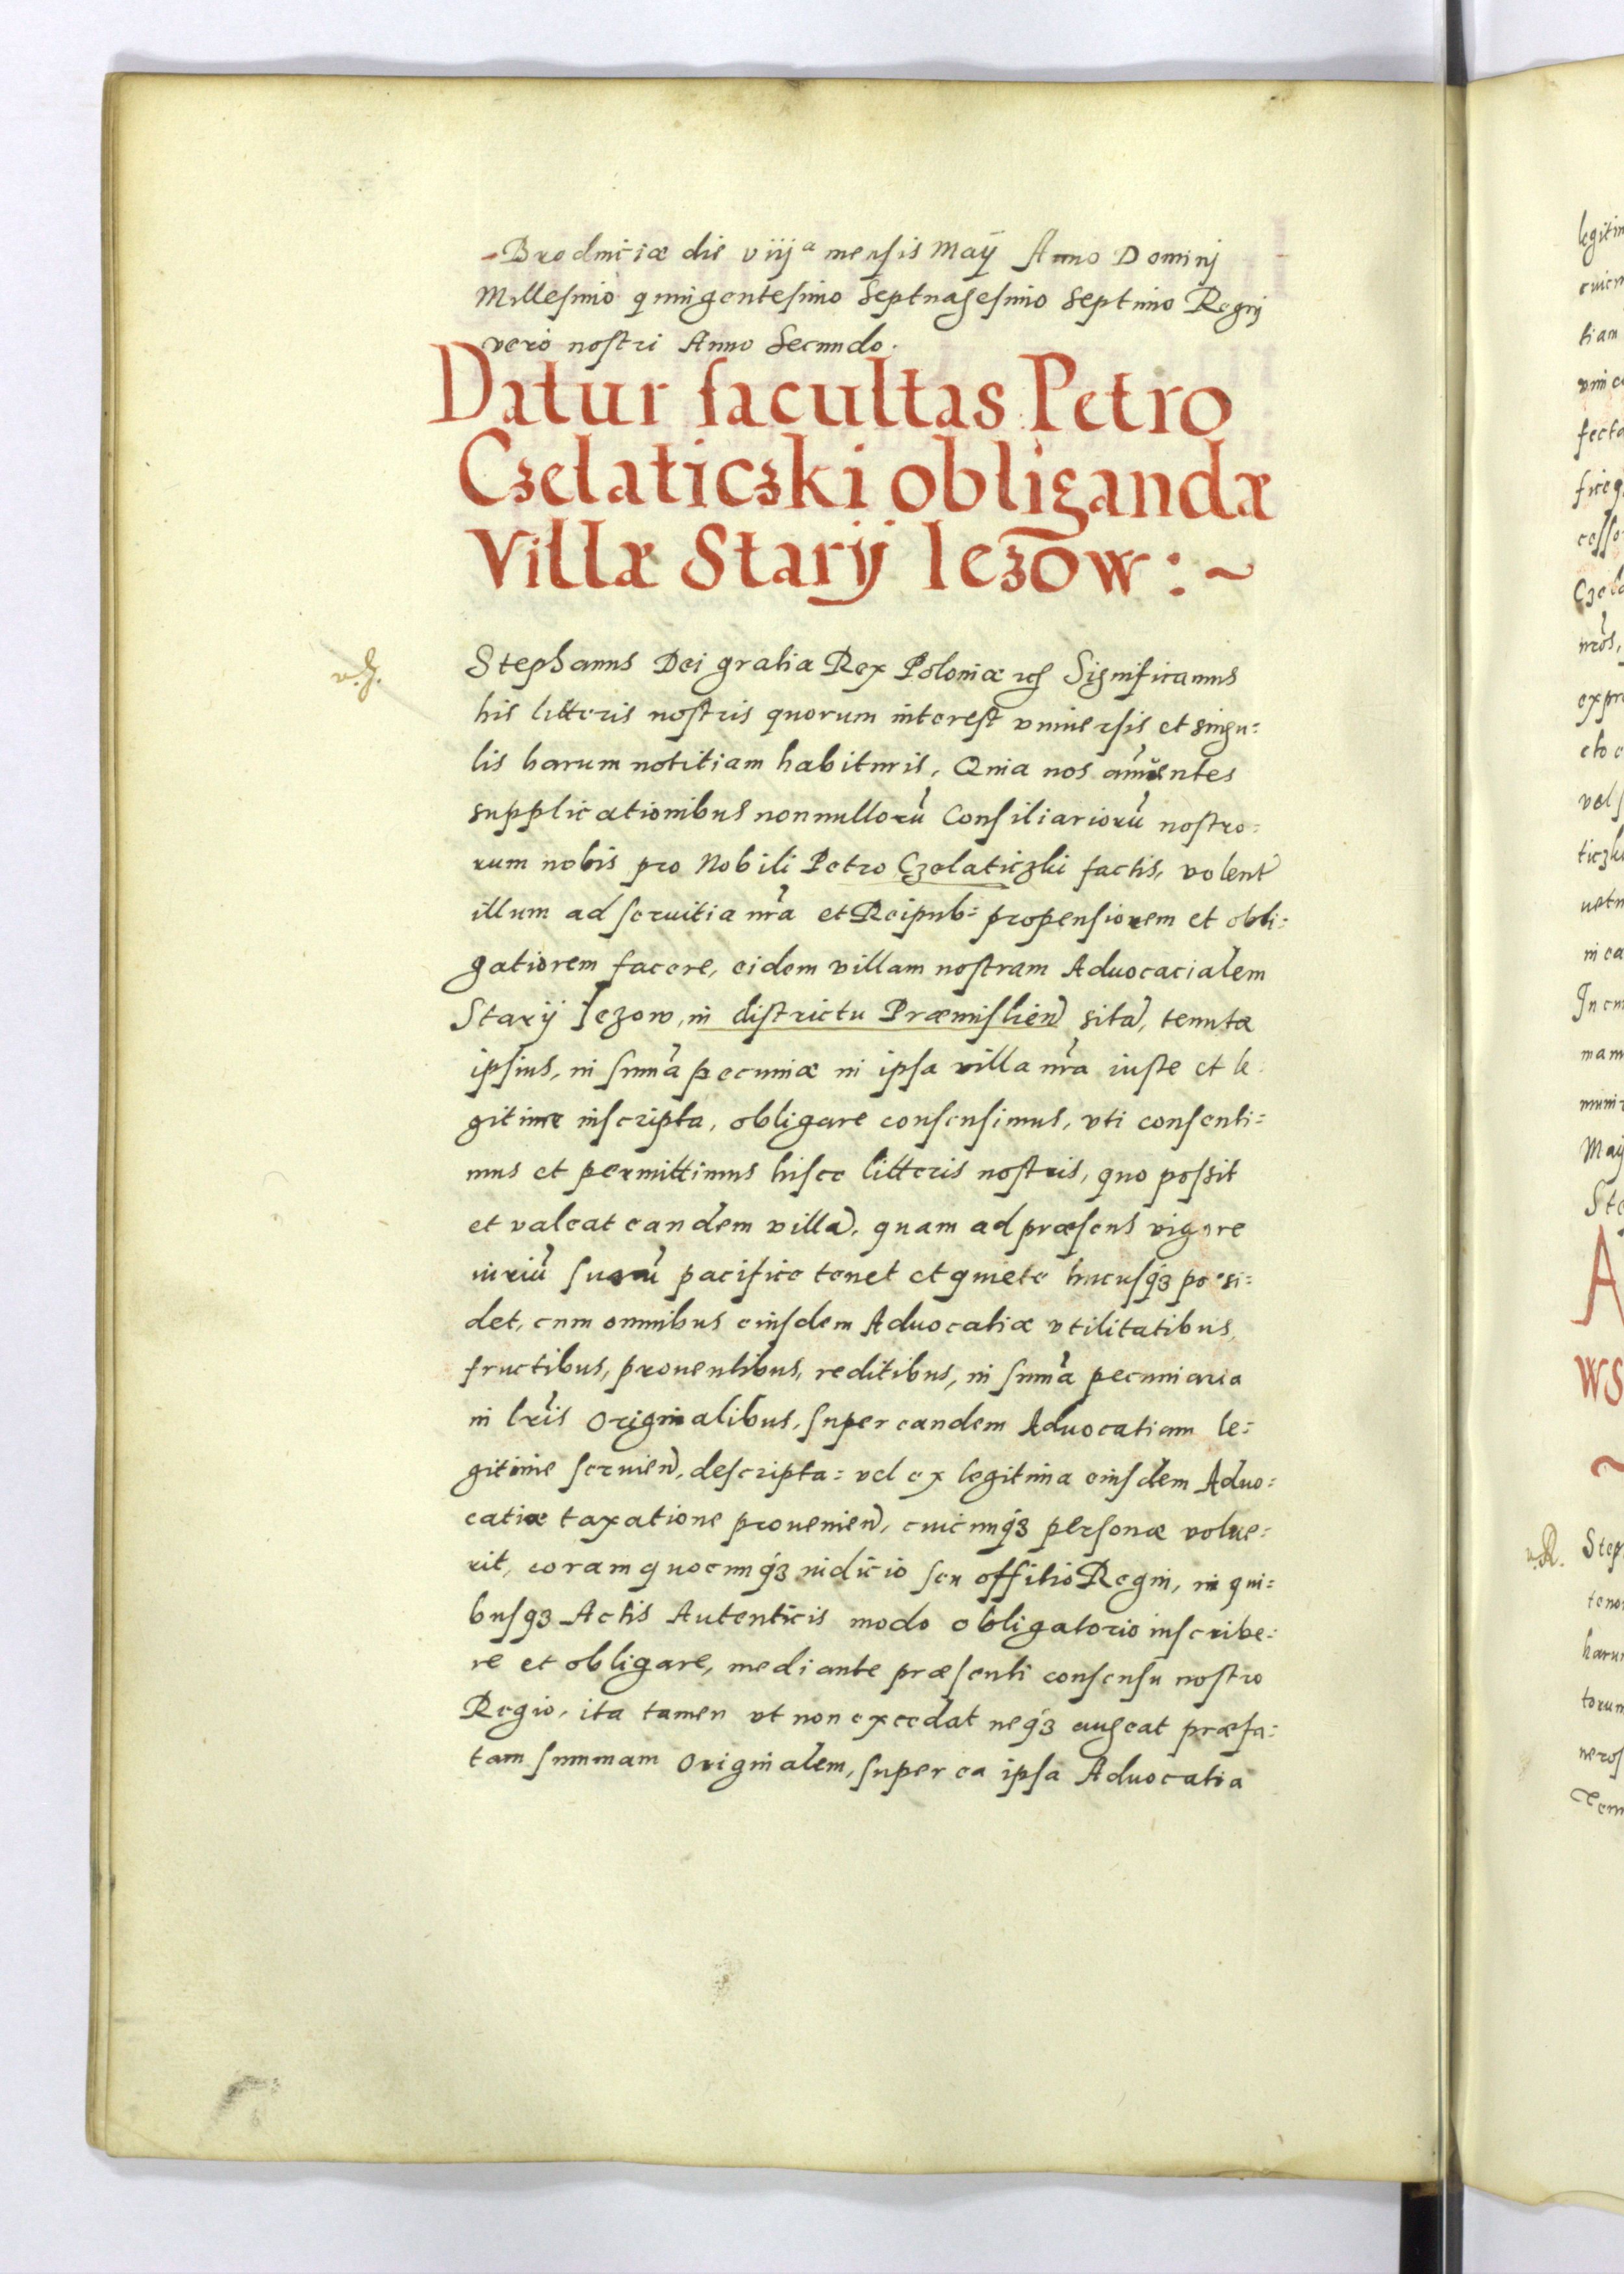 Brodniciæ die viijª mensis Maij Anno Dominj
Millesimo quingentesimo Septuagesimo Septimo Regnj
vero nostri Anno Secundo.
Datur facultas Petro
Czelaticzki obligandæ
Villæ Starij Iezow: ~
Stephanus Dei gratia Rex Poloniæ Significamus
his litteris nostris quorum interest vniuersis et singu=
lis harum notitiam habituris, Quia nos annuentes
supplicationibus nonnulloru̓ Consiliarioru̓ nostro=
rum nobis pro Nobili Petro Czelaticzki factis, volent
illum ad seruitia nr̃a et Reipub= propensiorem et obli=
gatiorem facere, eidem villam nostram Aduocacialem
Starij Iezow, in districtu Præmislien̄ sitā, tenutæ
ipsius, in sum̃a pecuniæ in ipsa villa nr̃a iuste et le
gitime inscripta, obligare consensimus, vti consenti=
mus et permittimus hisce litteris nostris, quo possit
et valeat eandem villā, quam ad præsens vigore
iuriu̓ suoru̓ pacifice tenet et quiete hucusq3 possi=
det, cum omnibus eiusdem Aduocatiæ vtilitatibus,
fructibus, prouentibus, reditibus, in sum̃a pecuniaria
in lr̃is Originalibus, super eandem Aduocatiam le=
gitime seruien̄, descripta= vel ex legitima eiusdem Aduo=
catiæ taxatione prouenien̄, cuicunq3 personæ volue=
rit, coram quocunq3 iudicio seu offitio Regni, in qui=
busq3 Actis Autenticis modo obligatorio inscribe=
re et obligare, mediante præsenti consensu nostro
Regio, ita tamen vt non excedat neq3 augeat præfa=
tam summam Originalem, super ea ipsa Aduocatia